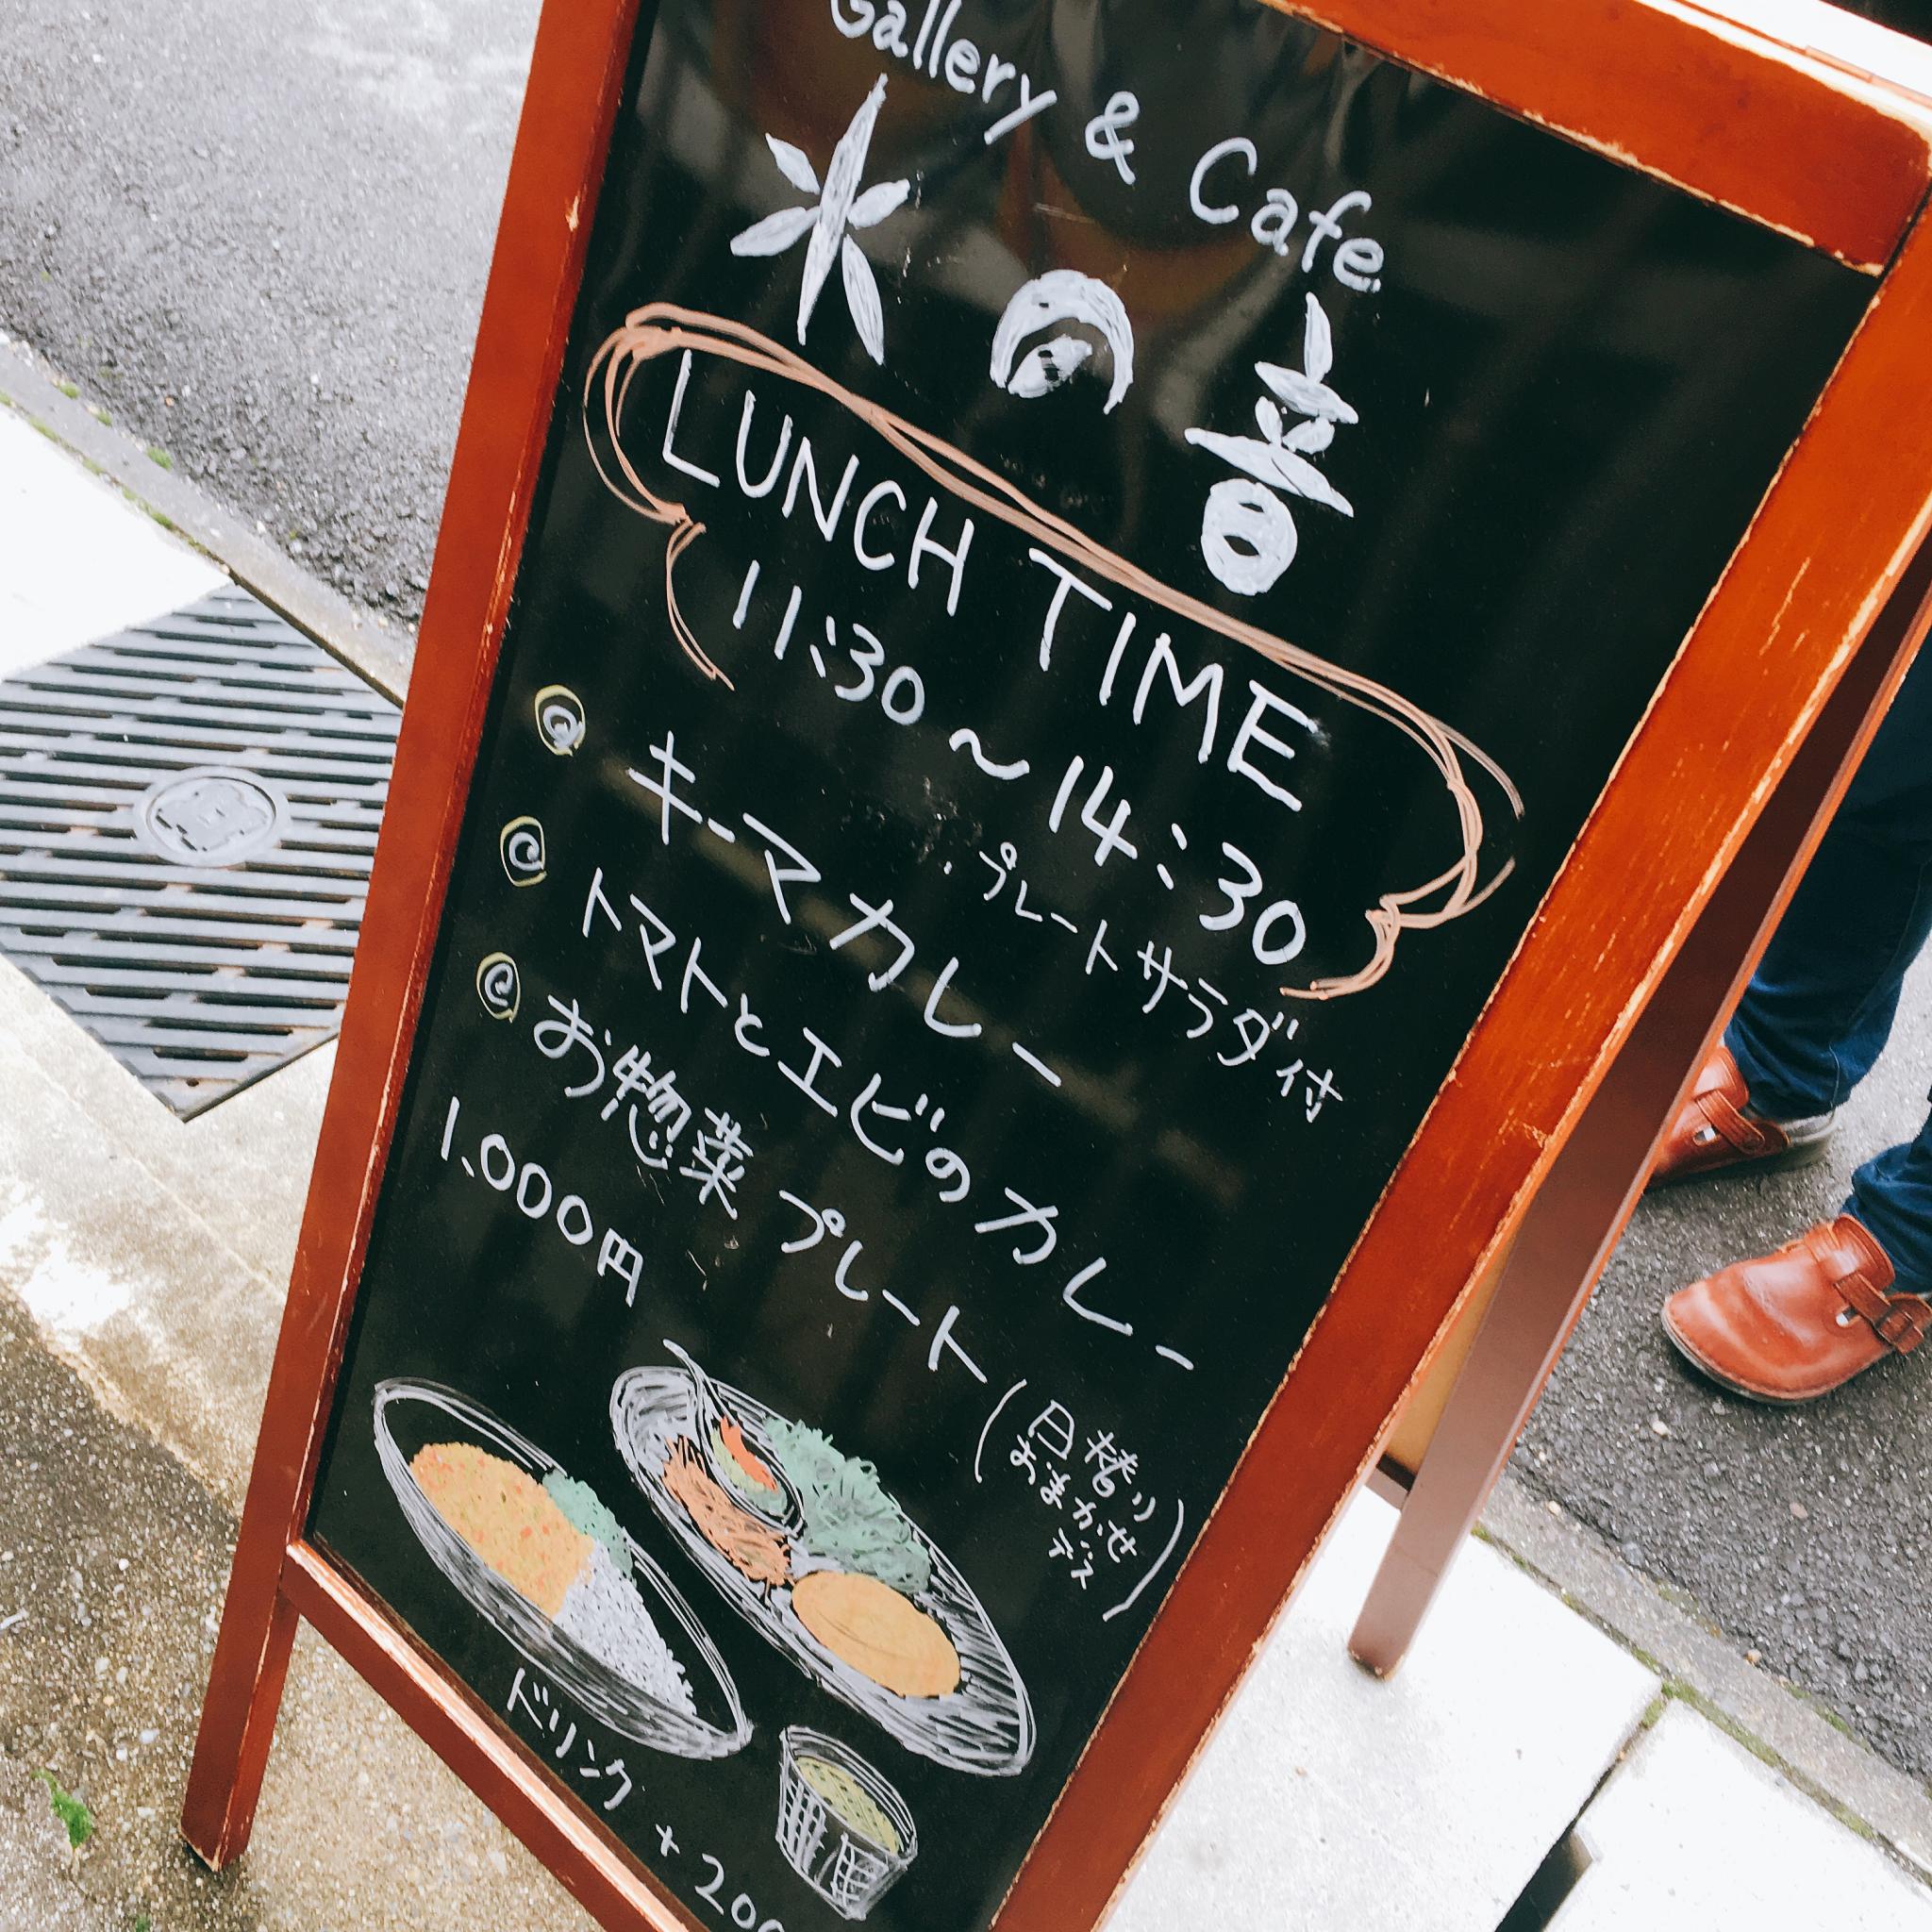 Gallery & Cafe
水の音
LUNCH TIME
11:30～14:30
・プレートサラダ付
@ キーマカレー
@ トマトとエビのカレー
@ お惣菜プレート
(日替り
おまかせ
デス)
1.000円
ドリンク +200